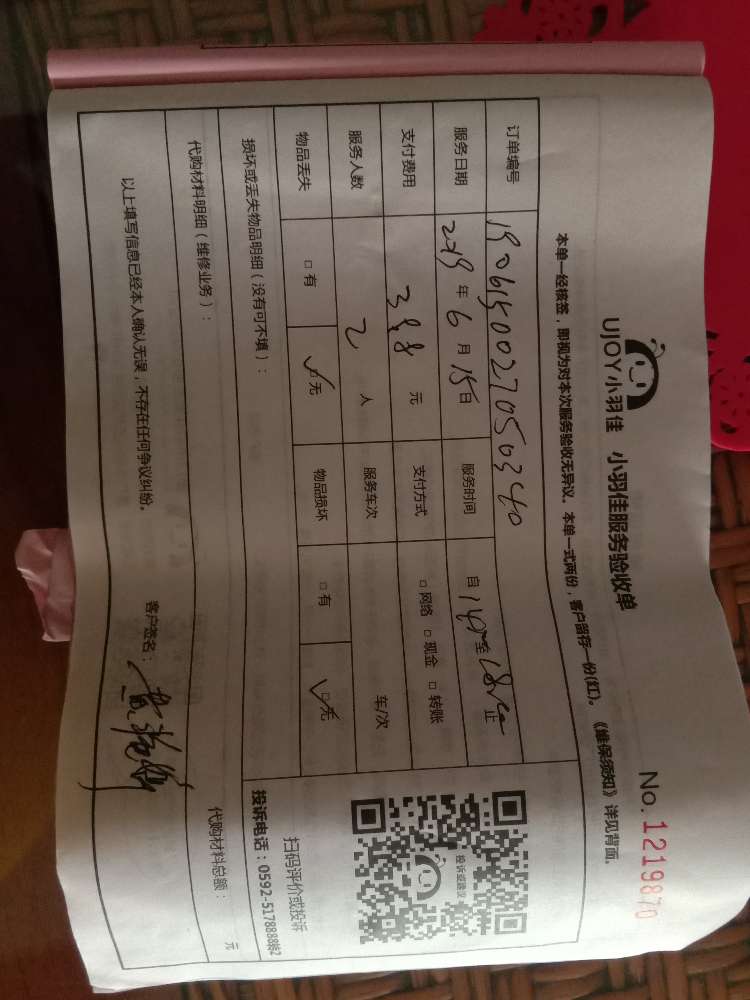 No.1219870
UJOY小羽佳 小羽佳服务验收单
本单一经核签，即视为对本次服务验收无异议。本单一式两份，客户留存一份(红)。《维保须知》详见背面。
订单编号
服务日期 2019年6月15日 服务时间 自 至 止
支付费用 388元 支付方式 □网络 □现金 □转账
服务人数 2人 服务车次 车/次
物品丢失 □有 ☑无 物品损坏 □有 ☑无
投诉或建议
扫码评价或投诉
投诉电话：0592-5178888转2
损坏或丢失物品明细（没有可不填）：
代购材料明细（维修业务）： 代购材料总额： 元
以上填写信息已经本人确认无误，不存在任何争议纠纷。 客户签名：